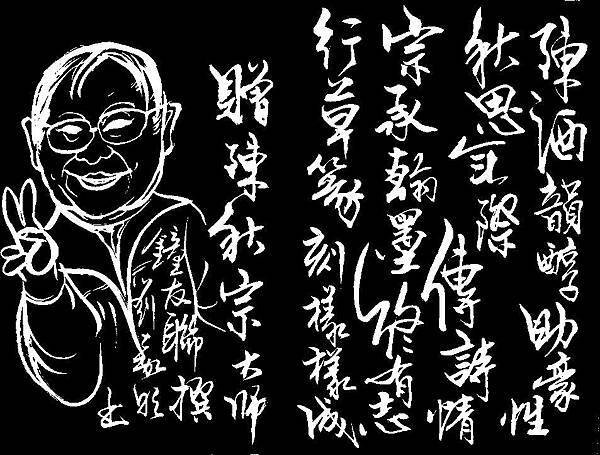 陳酒韻醇助豪性
秋思無際傳詩情
宗承翰墨終有志
行草篆刻樣樣成
贈陳秋宗大師
鐘友聯撰